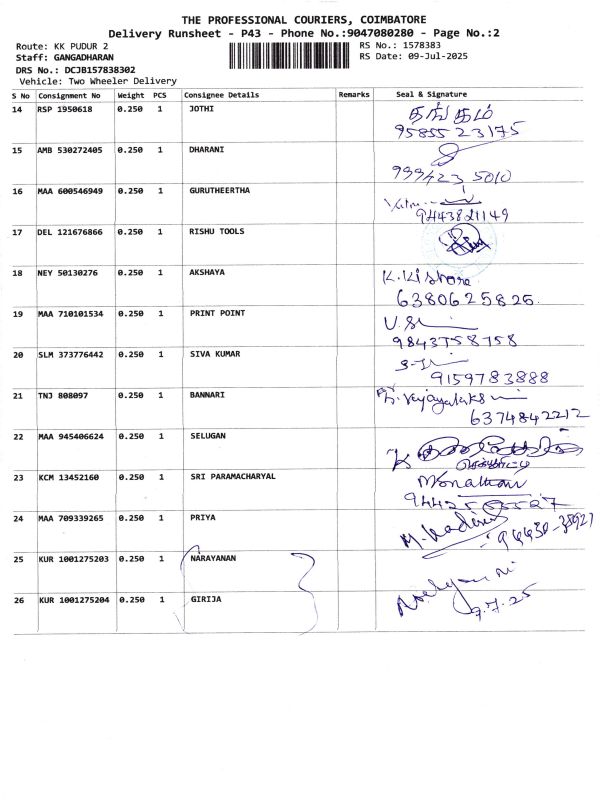 THE PROFESSIONAL COURIERS, COIMBATORE
Delivery Runsheet - P43 - Phone No.:9047080280 - Page No.:2
Route: KK PUDUR 2
RS No.: 1578383
Staff: GANGADHARAN
RS Date: 09-Jul-2025
DRS No.: DCJB157838302
Vehicle: Two Wheeler Delivery
S No Consignment No Weight PCS Consignee Details Remarks Seal & Signature
14 RSP 1950618 0.250 1 JOTHI தங்கம்
95855 23175
15 AMB 530272405 0.250 1 DHARANI
999423 5010
16 MAA 600546949 0.250 1 GURUTHEERTHA
9443821149
17 DEL 121676866 0.250 1 RISHU TOOLS
18 NEY 50130276 0.250 1 AKSHAYA K.Kishore
6380625826.
19 MAA 710101534 0.250 1 PRINT POINT
9843758758
20 SLM 373776442 0.250 1 SIVA KUMAR
9159783888
21 TNJ 808097 0.250 1 BANNARI
6374842212
22 MAA 945406624 0.250 1 SELUGAN
23 KCM 13452160 0.250 1 SRI PARAMACHARYAL
24 MAA 709339265 0.250 1 PRIYA
25 KUR 1001275203 0.250 1 NARAYANAN
26 KUR 1001275204 0.250 1 GIRIJA
9.7.25